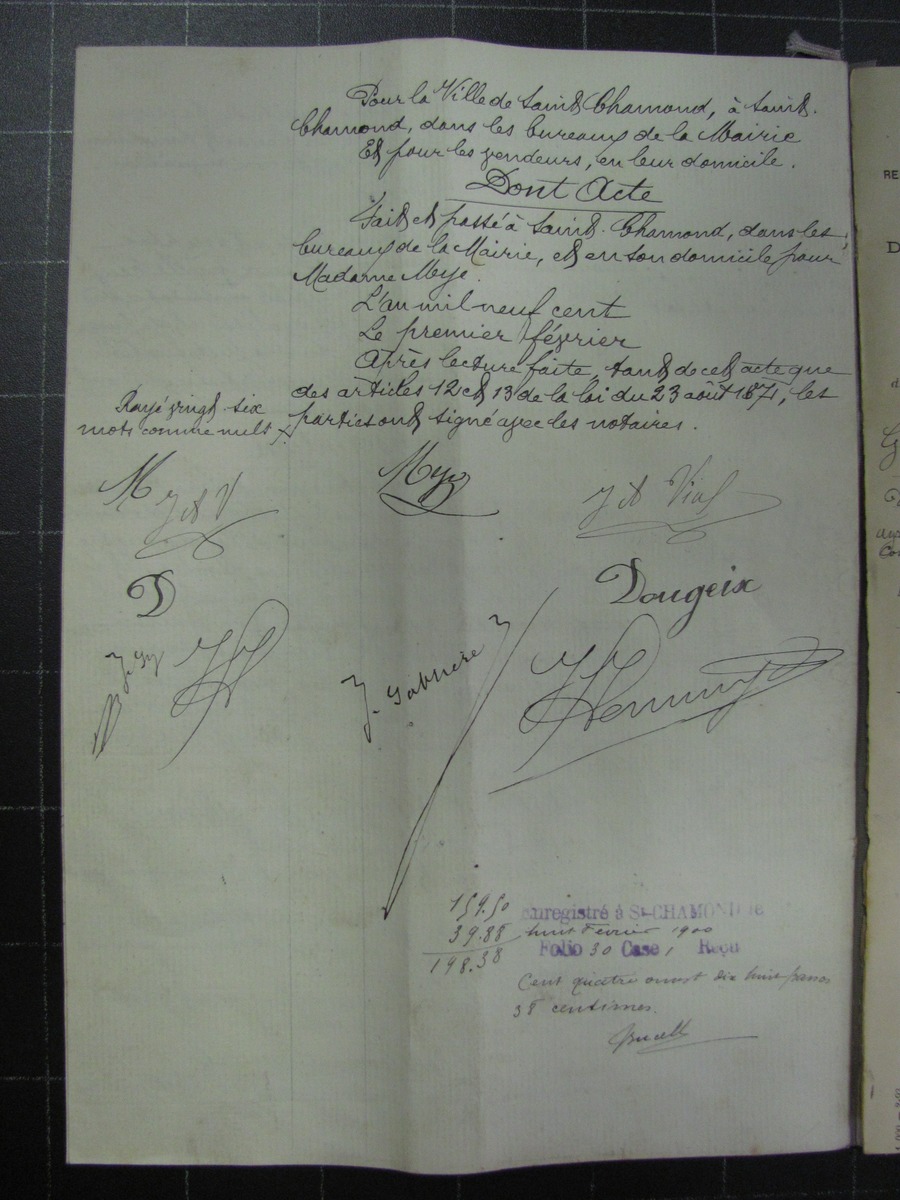 Pour la Ville de Saint Chamond, à Saint-
Chamond, dans les bureaux de la Mairie
Et pour les vendeurs, en leur domicile.
Dont Acte
Fait et passé à Saint-Chamond, dans les
bureaux de la Mairie, et en son domicile pour
Madame Meye.
L'an mil neuf cent
Le premier février
Après lecture faite, tant de cet acte que
des articles 12 et 13 de la loi du 23 août 1871, les
parties ont signé avec les notaires.
Rayé vingt six
mots comme nuls
M
J A V
J A Vial
D
Dougeix
159.50
39.88
198.38
Enregistré à St-CHAMOND le
huit Février 1900
Folio 30 Case 1 Reçu
Cent quatre vingt dix huit francs
38 centimes.